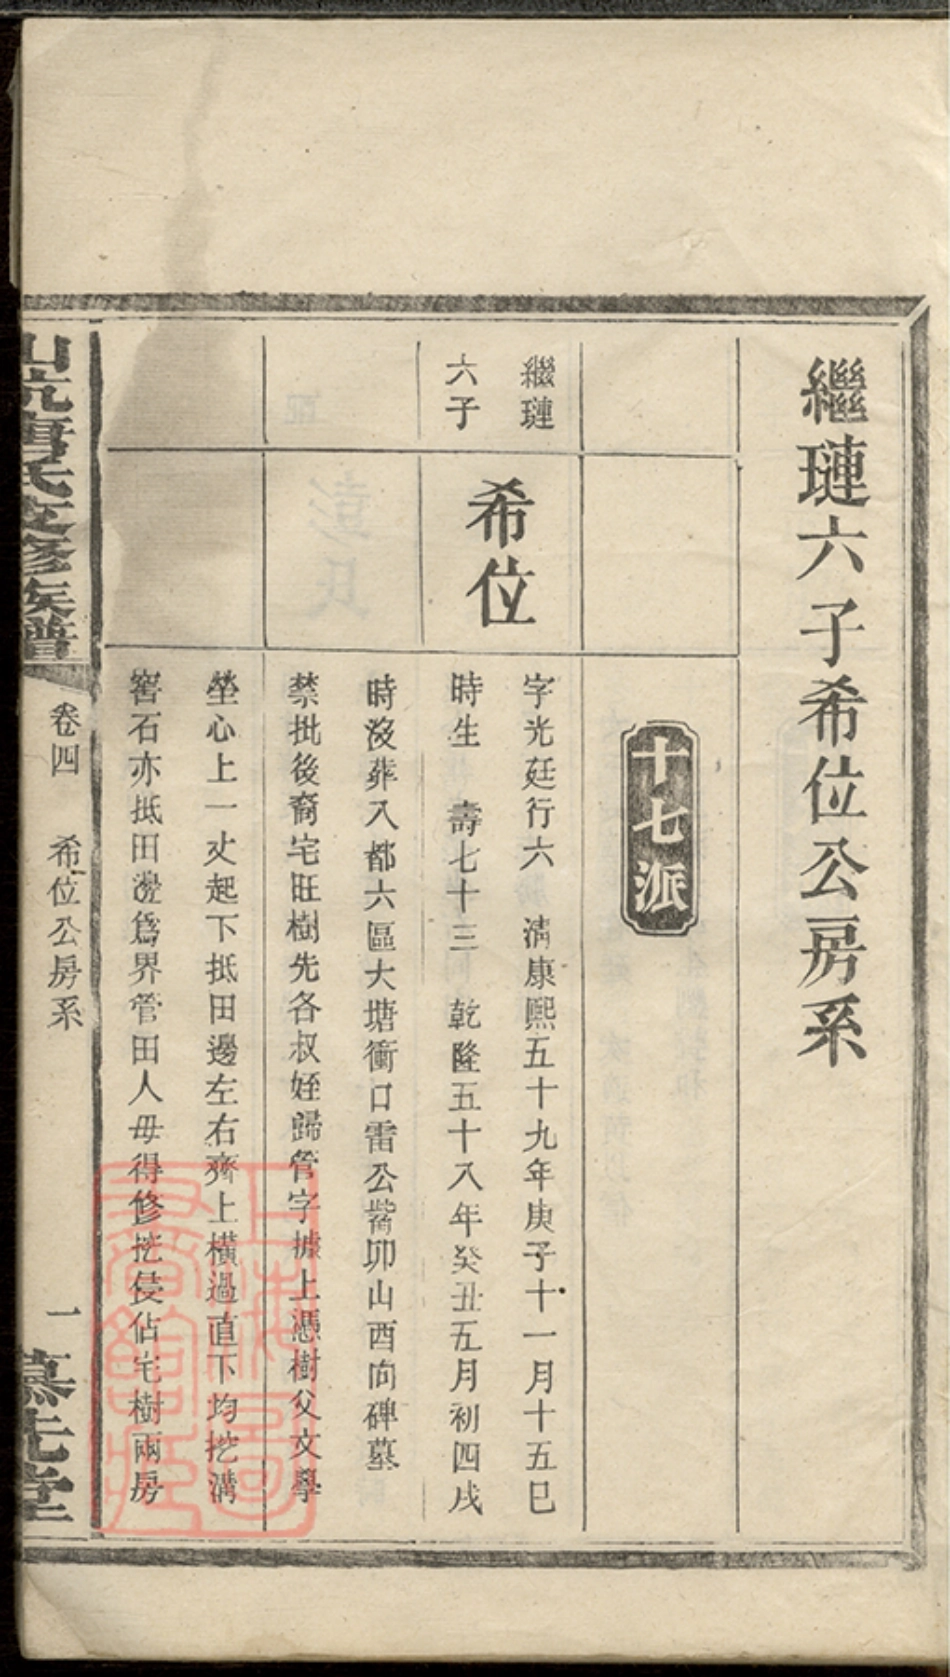 繼璉六子希位公房系
十七派
繼璉
六子
希位
字光廷行六 清康熙五十九年庚子十一月十五巳
時生 壽七十三 乾隆五十八年癸丑五月初四戌
時沒葬入都六區大塘衝口雷公嘴卯山酉向碑墓
禁批後裔宅旺樹先各叔姪歸管字據上憑樹父文學
塋心上一丈起下抵田邊左右齊上橫過直下均挖溝
窖石亦抵田邊爲界管田人毋得修挖侵佔宅樹兩房
氏支修族譜
卷四 希位公房系
一
慕先堂
上海圖書館藏